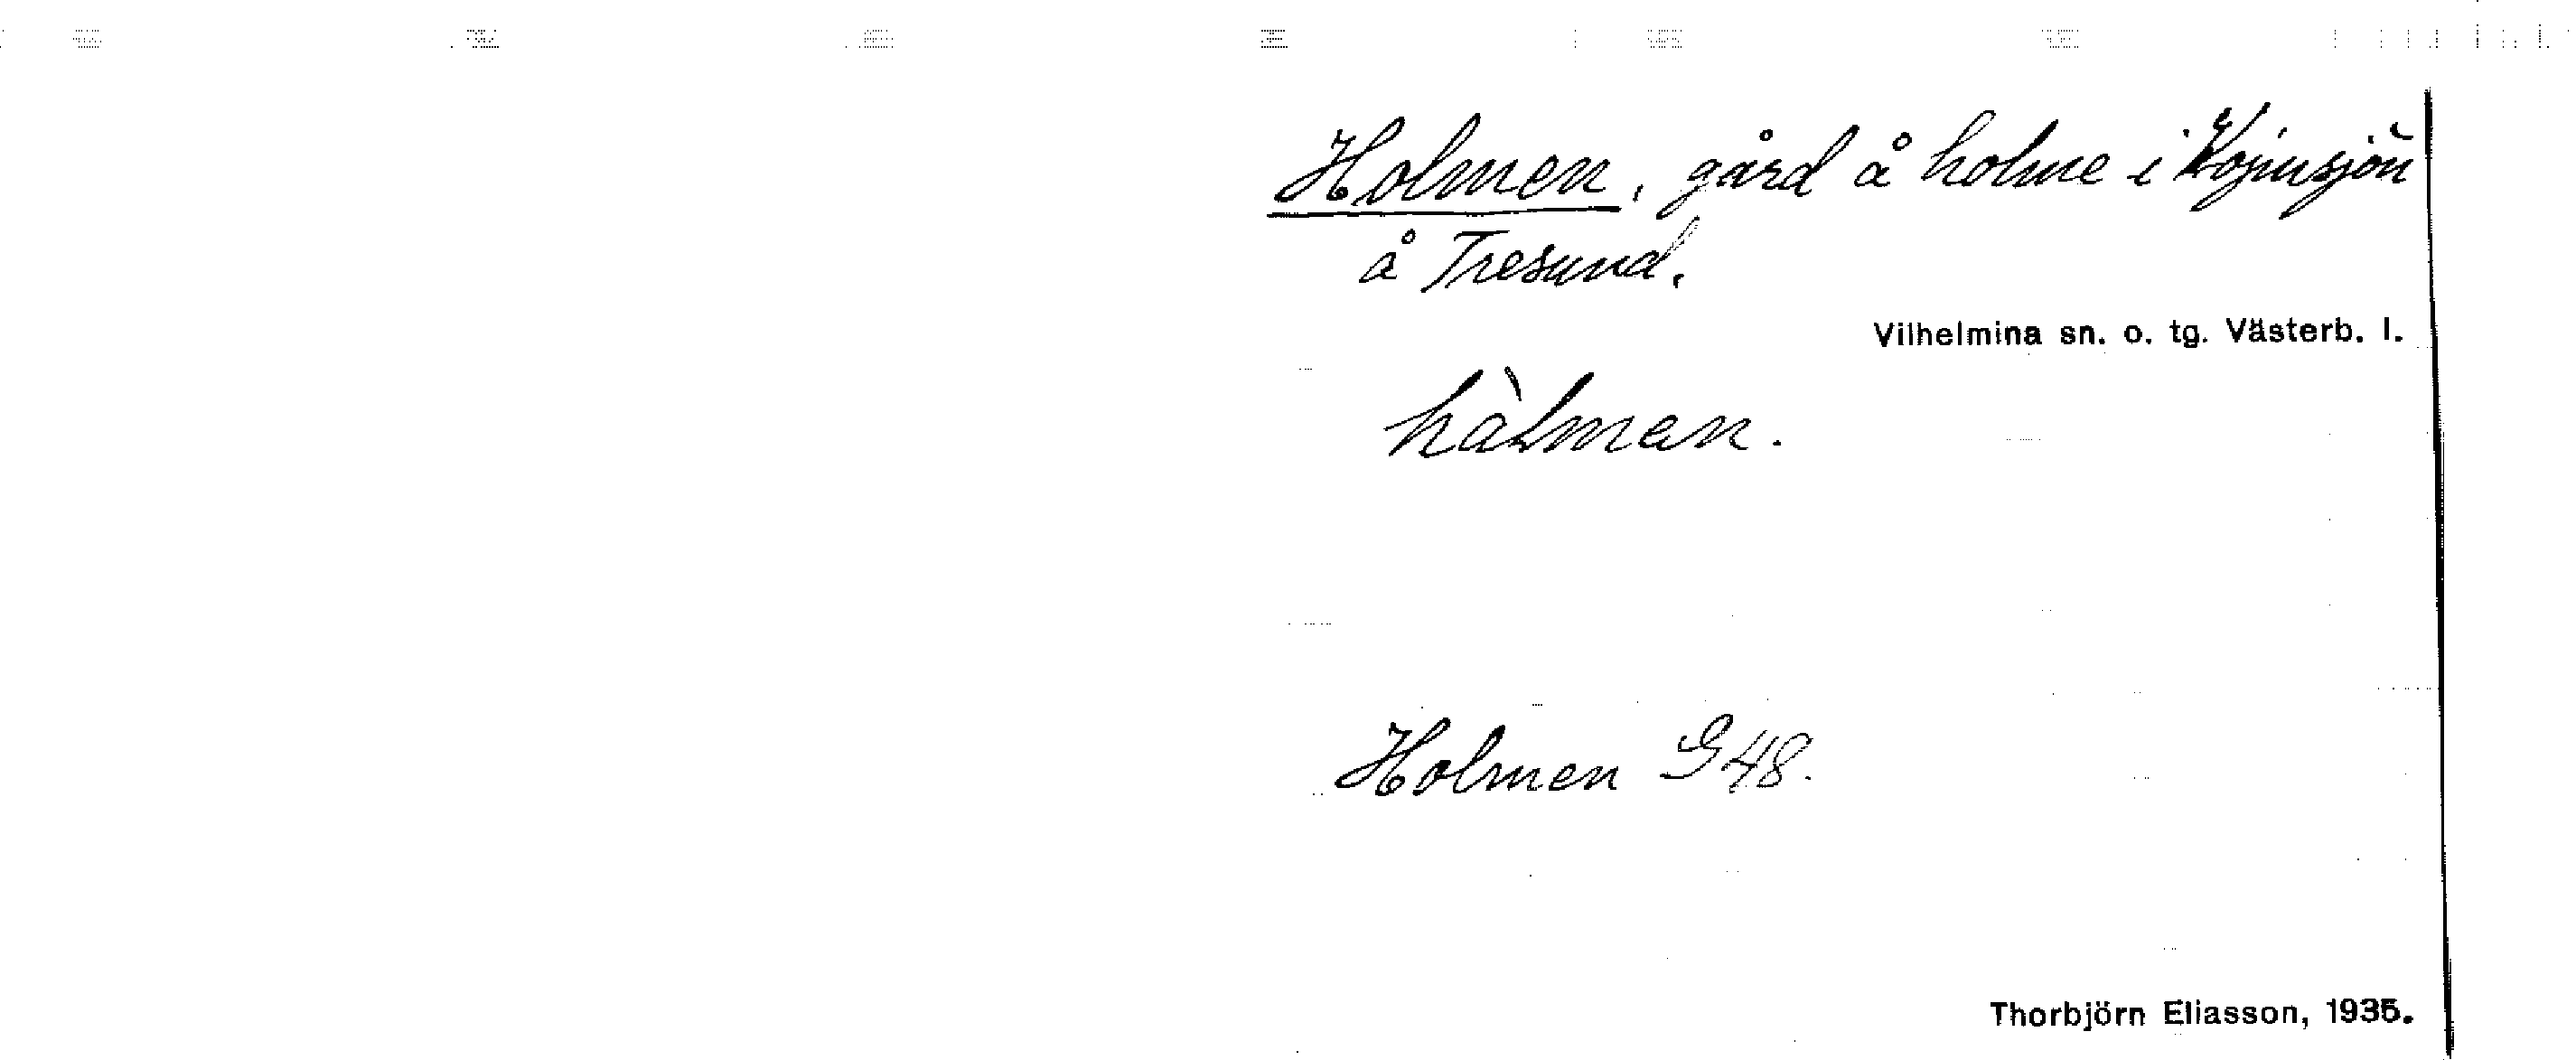 Holmen, gård å holme i Kojmsjön
å Tresund.
Vilhelmina sn. o. tg. Västerb. l.
hàlmen.
Holmen G48.
Thorbjörn Eliasson, 1935.